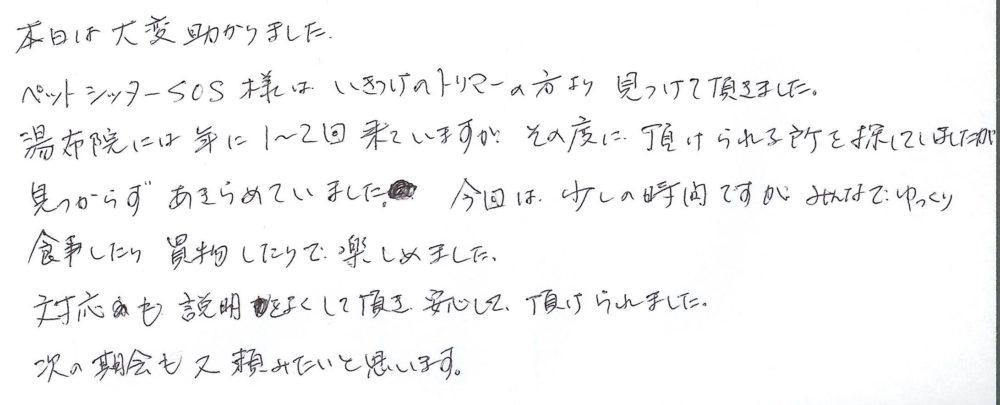 本日は大変助かりました.
ペットシッターSOS様は いきつけのトリマーの方より 見つけて頂きました。
湯布院には 年に 1〜2回 来ていますが、その度に、頂けられる所を探していましたが
見つからず あきらめていました。 今回は、少しの時間ですが、みんなで ゆっくり
食事したり 買物したりで、楽しめました、
対応も 説明もよくして頂き、安心して、頂けられました。
次の期会も又頼みたいと思います。